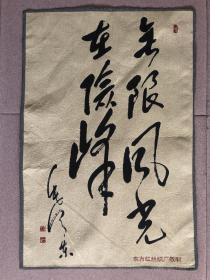 无限风光
在险峰
毛泽东
东方红丝织厂敬制